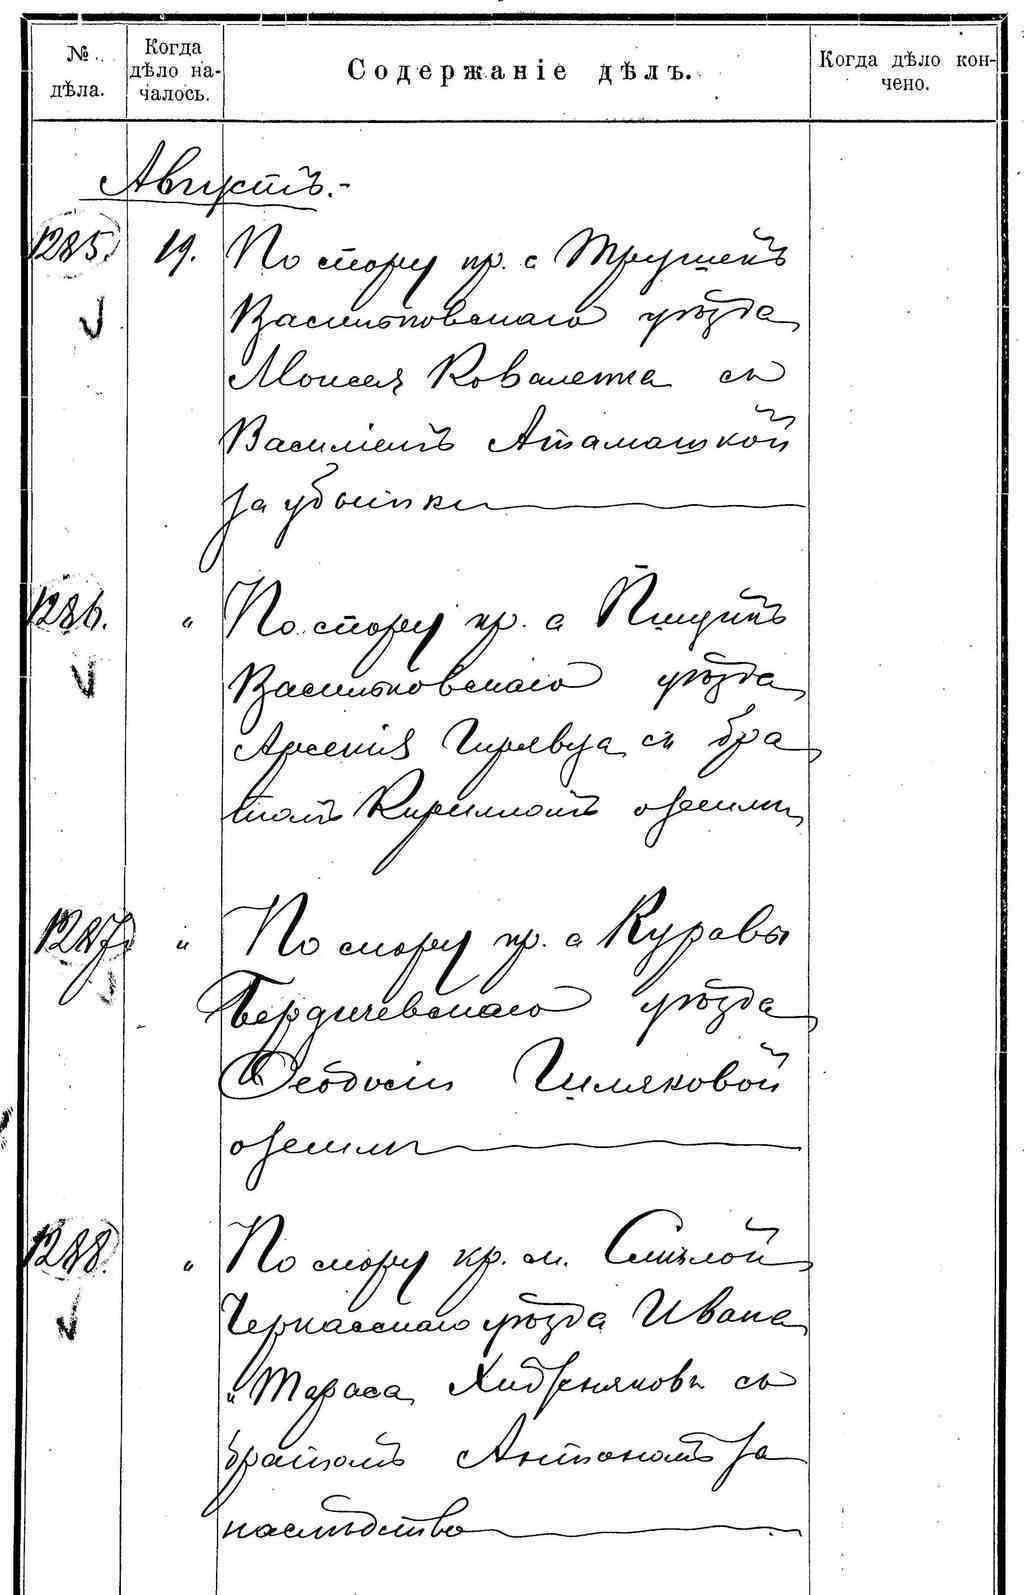 № дѣла.
Когда дѣло на-
чалось.
Содержаніе дѣлъ.
Когда дѣло кон-
чено.
Августъ.-
1285. 19. По спору кр. с Трушекъ
Васильковскаго уѣзда
Моисея Коваленка съ
Василіемъ Атамашкой
за убытки
1286. " По спору кр. с
Васильковскаго уѣзда
Арсенія съ бра
томъ Кирилломъ о земли
1287. " По спору кр. с Куравы
Бердичевскаго уѣзда
Ѳеодосіи Гиляковой
о земли
1288. " По спору кр. м. Смѣлой
Черкасскаго уѣзда Ивана
и Тараса съ
братомъ Антономъ за
наслѣдство